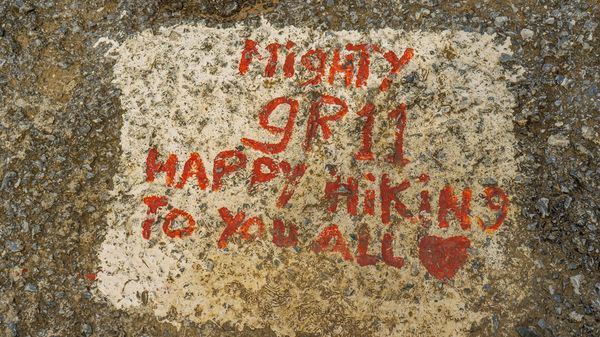 MigHTY
gR11
HAPPY HiKiNg
To YOU ALL